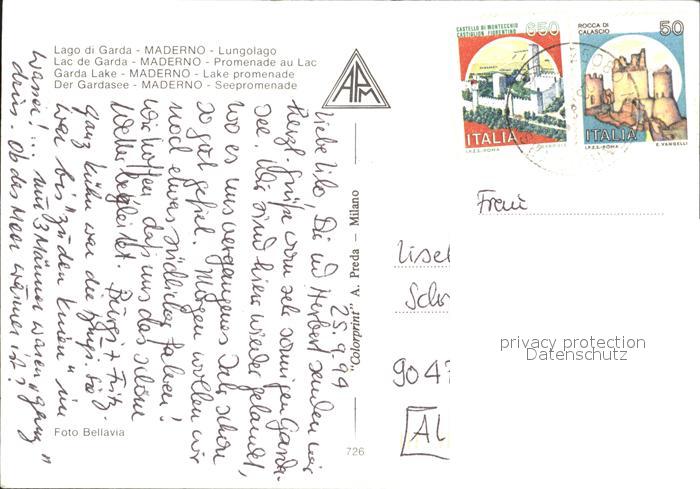 Lago di Garda - MADERNO - Lungolago
Lac de Garda - MADERNO - Promenade au Lac
Garda Lake - MADERNO - Lake promenade
Der Gardasee - MADERNO - Seepromenade
APM
CASTELLO DI MONTECCHIO
CASTIGLION FIORENTINO
650
ITALIA
I.P.Z.S.-ROMA
ROCCA DI
CALASCIO
50
ITALIA
I.P.Z.S.-ROMA
E. VANGELLI
25.9.94
Liebe Lilo! Dir u. Herbert senden wir
herzl. Grüße vom sehr sonnigen Garda-
see. Wir sind hier wieder gelandet,
wo es uns vergangenes Jahr schon
so gut gefiel. Morgen wollen wir
noch etwas südlicher fahren!
Wir hoffen, daß uns das schöne
Wetter begleitet. Birgit + Fritz
ganz kühn war die
war bis "zu den Knien" im
Wasser!... nur 3 Männer waren "ganz"
drin. Ob das Meer wärmer ist?
"Colorprint" A. Preda — Milano
Foto Bellavia
726
Frau
Lisel
Sch
9047
AL
privacy protection
Datenschutz